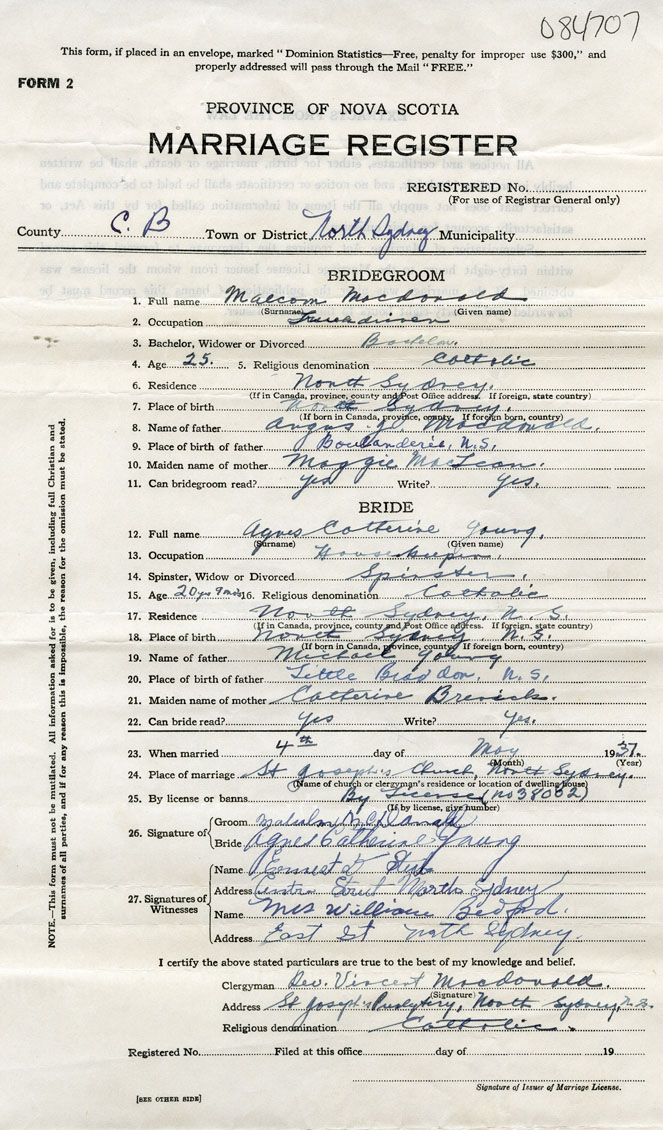 084707
This form, if placed in an envelope, marked "Dominion Statistics—Free, penalty for improper use $300," and
properly addressed will pass through the Mail "FREE."
FORM 2
PROVINCE OF NOVA SCOTIA
MARRIAGE REGISTER
REGISTERED No.
(For use of Registrar General only)
County C. B Town or District North Sydney Municipality
BRIDEGROOM
1. Full name Malcom Macdonald
(Surname) (Given name)
2. Occupation Truckdriver
3. Bachelor, Widower or Divorced Bachelor
4. Age 25. 5. Religious denomination Catholic
6. Residence North Sydney.
(If in Canada, province, county and Post Office address. If foreign, state country)
7. Place of birth North Sydney.
(If born in Canada, province, county. If foreign born, country)
8. Name of father Angus J. Macdonald.
9. Place of birth of father Boulanderie, N.S.
10. Maiden name of mother Maggie MacLean.
11. Can bridegroom read? Yes Write? Yes.
BRIDE
12. Full name Agnes Catherine Young.
(Surname) (Given name)
13. Occupation Housekeeper.
14. Spinster, Widow or Divorced Spinster.
15. Age 20 yrs 9 mos 16. Religious denomination Catholic
17. Residence North Sydney, N. S.
(If in Canada, province, county and Post Office address. If foreign, state country)
18. Place of birth North Sydney, N. S.
(If born in Canada, province, county. If foreign born, country)
19. Name of father Michael Young
20. Place of birth of father Little Bras dor, N. S.
21. Maiden name of mother Catherine
22. Can bride read? Yes Write? Yes.
23. When married 4th day of May 1937.
(Month) (Year)
24. Place of marriage St Joseph's Church, North Sydney.
(Name of church or clergyman's residence or location of dwelling house)
25. By license or banns By License (no 38002)
(If by license, give number)
26. Signature of Groom Malcolm McDonald
Bride Agnes Catherine Young
27. Signatures of Witnesses
Name Ernnest
Address Street North Sydney
Name Mrs William Bedford.
Address East St North Sydney.
I certify the above stated particulars are true to the best of my knowledge and belief.
Clergyman Rev. Vincent Macdonald.
(Signature)
Address St Joseph's Presbytery, North Sydney, N.S.
Religious denomination Catholic.
Registered No. Filed at this office day of 19
Signature of Issuer of Marriage License.
[SEE OTHER SIDE]
NOTE.—This form must not be mutilated. All information asked for is to be given, including full Christian and
surnames of all parties, and if for any reason this is impossible, the reason for the omission must be stated.